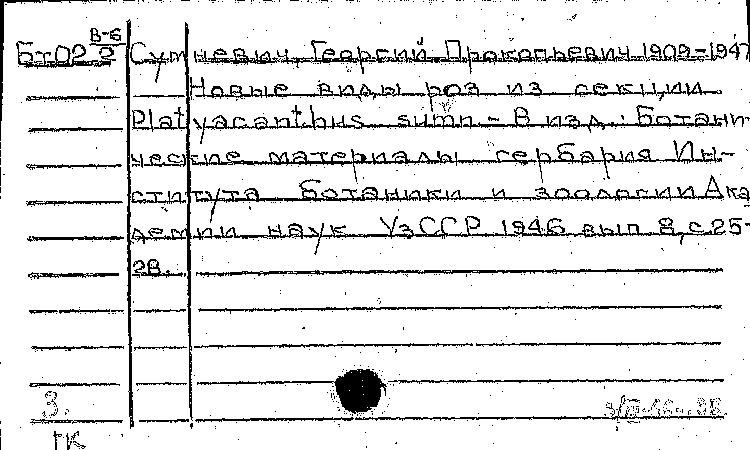 В-6
Бт022 Сумневич, Георгий Прокопьевич 1909-1947
Новые виды роз из секции
Platyacanthus sumn - В изд.: Ботани-
ческие материалы гербария Ин-
ститута Ботаники и зоологии Ака
демии наук УзССР 1946 вып 8, с 25-
28.
3.
ГК